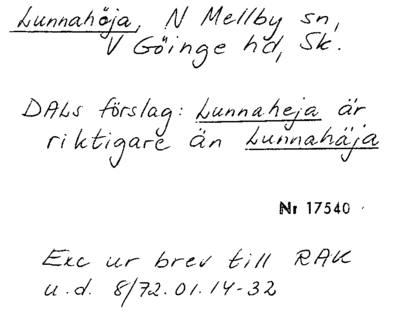 Lunnahöja, N Mellby sn,
V Göinge hd, Sk.
DALs förslag: Lunnaheja är
riktigare än Lunnahäja
Nr 17540
Exc ur brev till RAK
u.d. 8/72.01.14-32